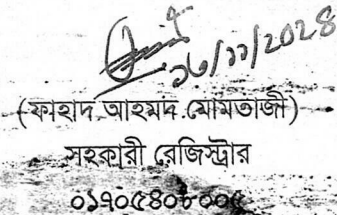 ১৬/১১/২০২৪
(ফাহাদ আহমদ মোমতাজী)
সহকারী রেজিস্ট্রার
০১৭০৫৪০৮০০৫